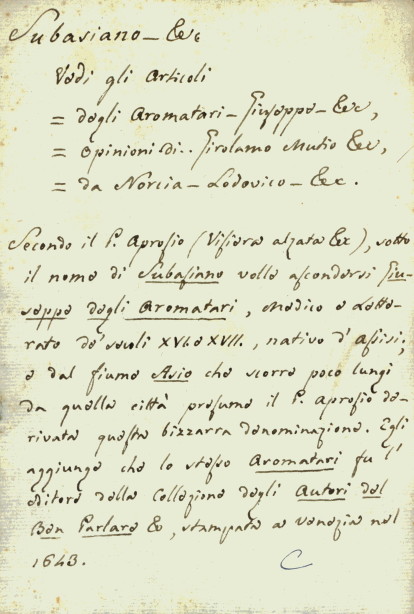 Subasiano - &c
Vedi gli Articoli
= degli Aromatari - Giuseppe - &c,
= Opinioni di.. Girolamo Mutio &c,
= da Norcia - Lodovico - &c.
Secondo il P. Aprosio (Visiera alzata &c), sotto
il nome di Subasiano volle ascondersi Giu-
seppe degli Aromatari, Medico e Lette-
rato de' secoli XVI e XVII., nativo d'Assisi;
e dal fiume Asio che scorre poco lungi
da quella città presume il P. Aprosio de-
rivata questa bizzarra denominazione. Egli
aggiunge che lo stesso Aromatari fu l'
editore della Collezione degli Autori del
Ben Parlare &c, stampata a Venezia nel
1643. C